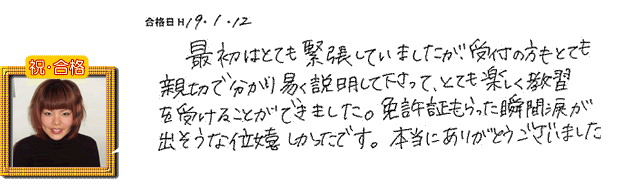 合格日 H19.1.12
最初はとても緊張していましたが、受付の方もとても
親切で分かり易く説明して下さって、とても楽しく教習
祝・合格
を受けることができました。免許証もらった瞬間涙が
出そうな位嬉しかったです。本当にありがとうございました